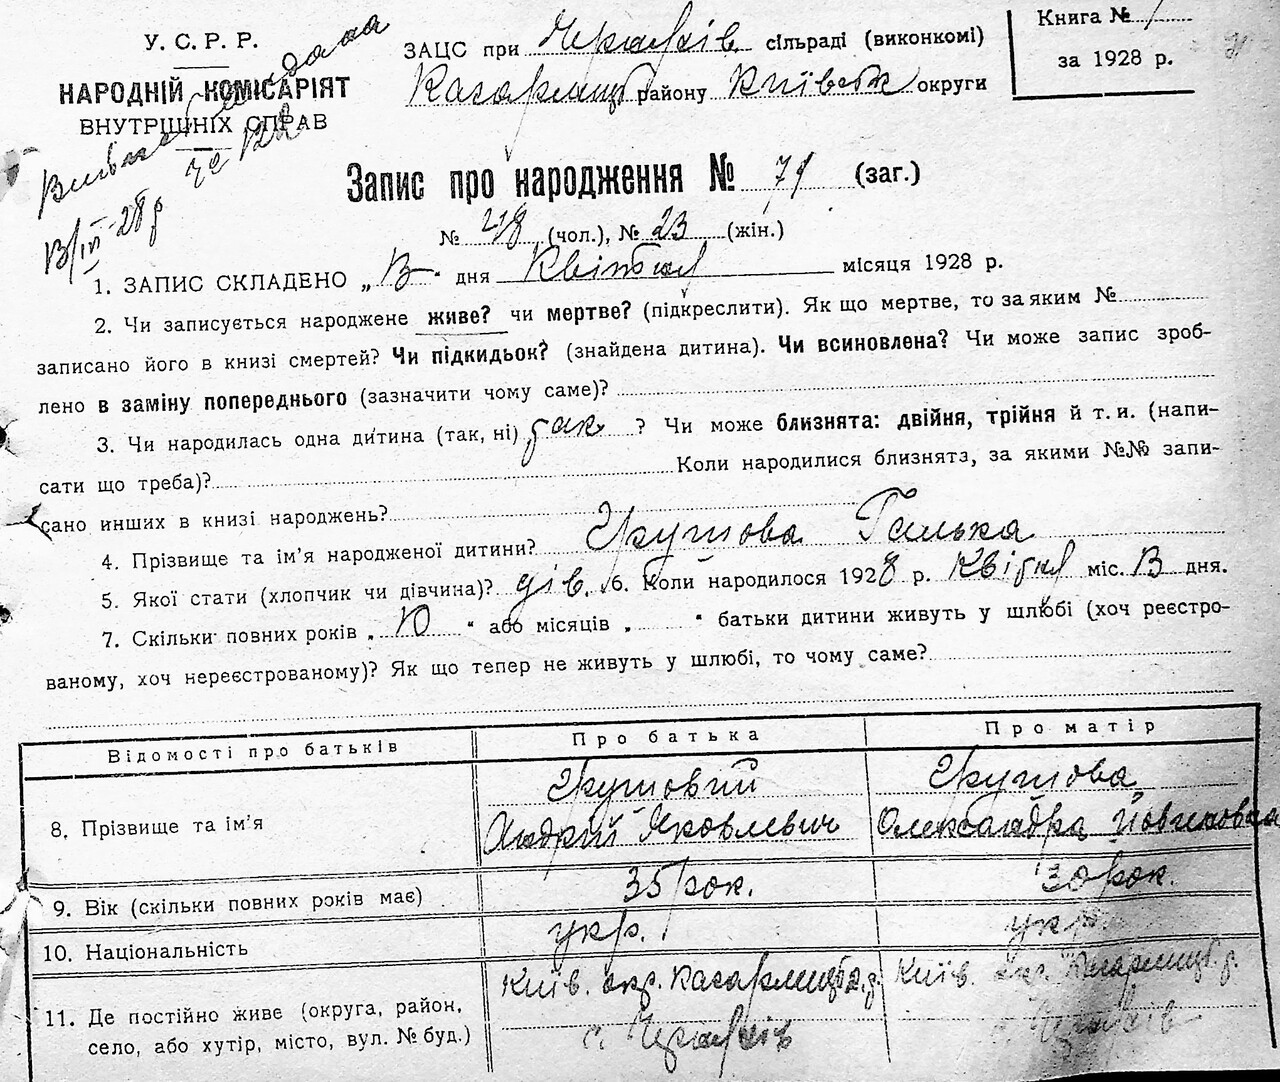 У. С. Р. Р.
НАРОДНІЙ КОМІСАРІЯТ
ВНУТРІШНІХ СПРАВ
ЗАЦС при сільраді (виконкомі)
Кагарлицьк району Київськ округи
Книга № 1
за 1928 р.
Запис про народження № 71 (заг.)
№ 48 (чол.), № 23 (жін.)
1. ЗАПИС СКЛАДЕНО „ 13 " дня Квітня місяця 1928 р.
2. Чи записується народжене живе? чи мертве? (підкреслити). Як що мертве, то за яким №
записано його в книзі смертей? Чи підкидьок? (знайдена дитина). Чи всиновлена? Чи може запис зроб-
лено в заміну попереднього (зазначити чому саме)?
3. Чи народилась одна дитина (так, ні) так ? Чи може близнята: двійня, трійня й т. и. (напи-
сати що треба)? Коли народилися близнята, за якими №№ запи-
сано инших в книзі народжень?
4. Прізвище та ім'я народженої дитини? Галька
5. Якої стати (хлопчик чи дівчина)? дів. 6. Коли народилося 1928 р. Квітня міс. 13 дня.
7. Скільки повних років „ 10 " або місяців „ " батьки дитини живуть у шлюбі (хоч реєстро-
ваному, хоч нереєстрованому)? Як що тепер не живуть у шлюбі, то чому саме?
Відомості про батьків Про батька Про матір
8. Прізвище та ім'я
Андрій Яковлевич Олександра
9. Вік (скільки повних років має) 35 рок. 30 рок.
10. Національність укр. укр.
11. Де постійно живе (округа, район, Київ. окр. Кагарлицьк. р. Київ. окр. Кагарлицьк. р.
село, або хутір, місто, вул. № буд.) с. с.